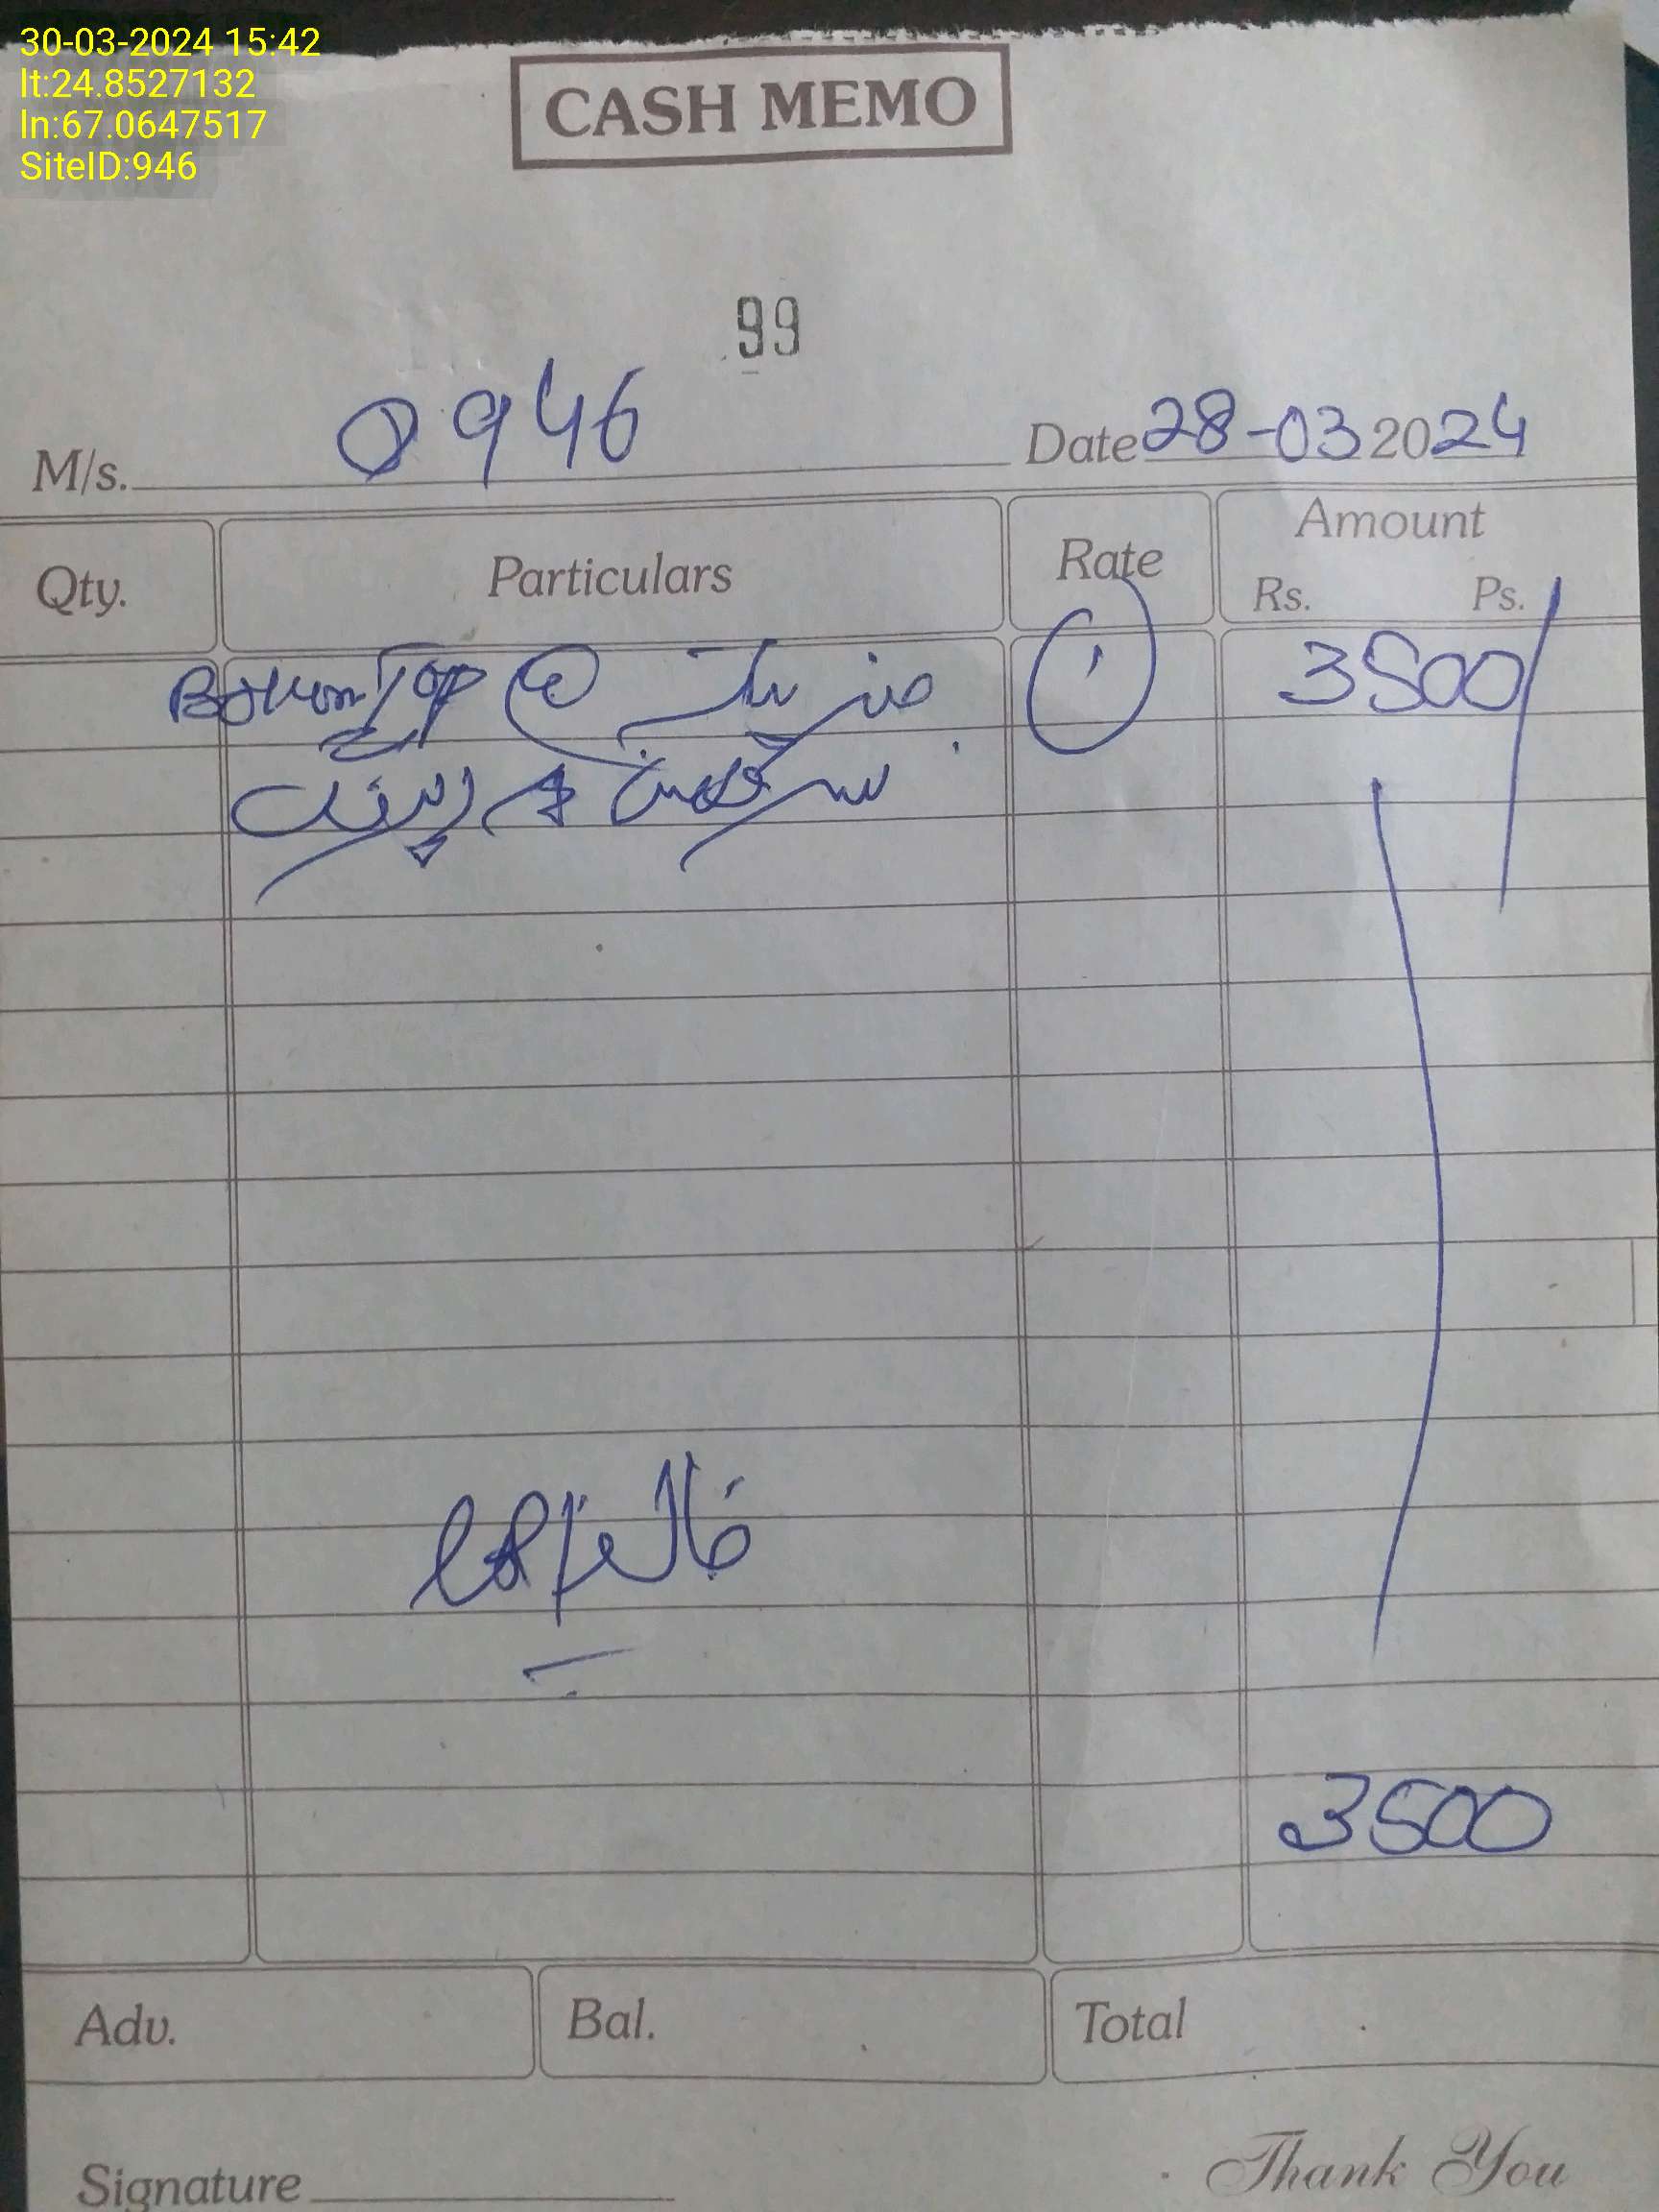 30-03-2024 15:42
lt:24.8527132
ln:67.0647517
SiteID:946
CASH MEMO
99
M/s. 0946
Date 28-03 2024
Qty. Particulars Rate Amount
Rs. Ps.
Bottom Top 1 3500/
3500
Adv. Bal. Total
Signature
Thank You